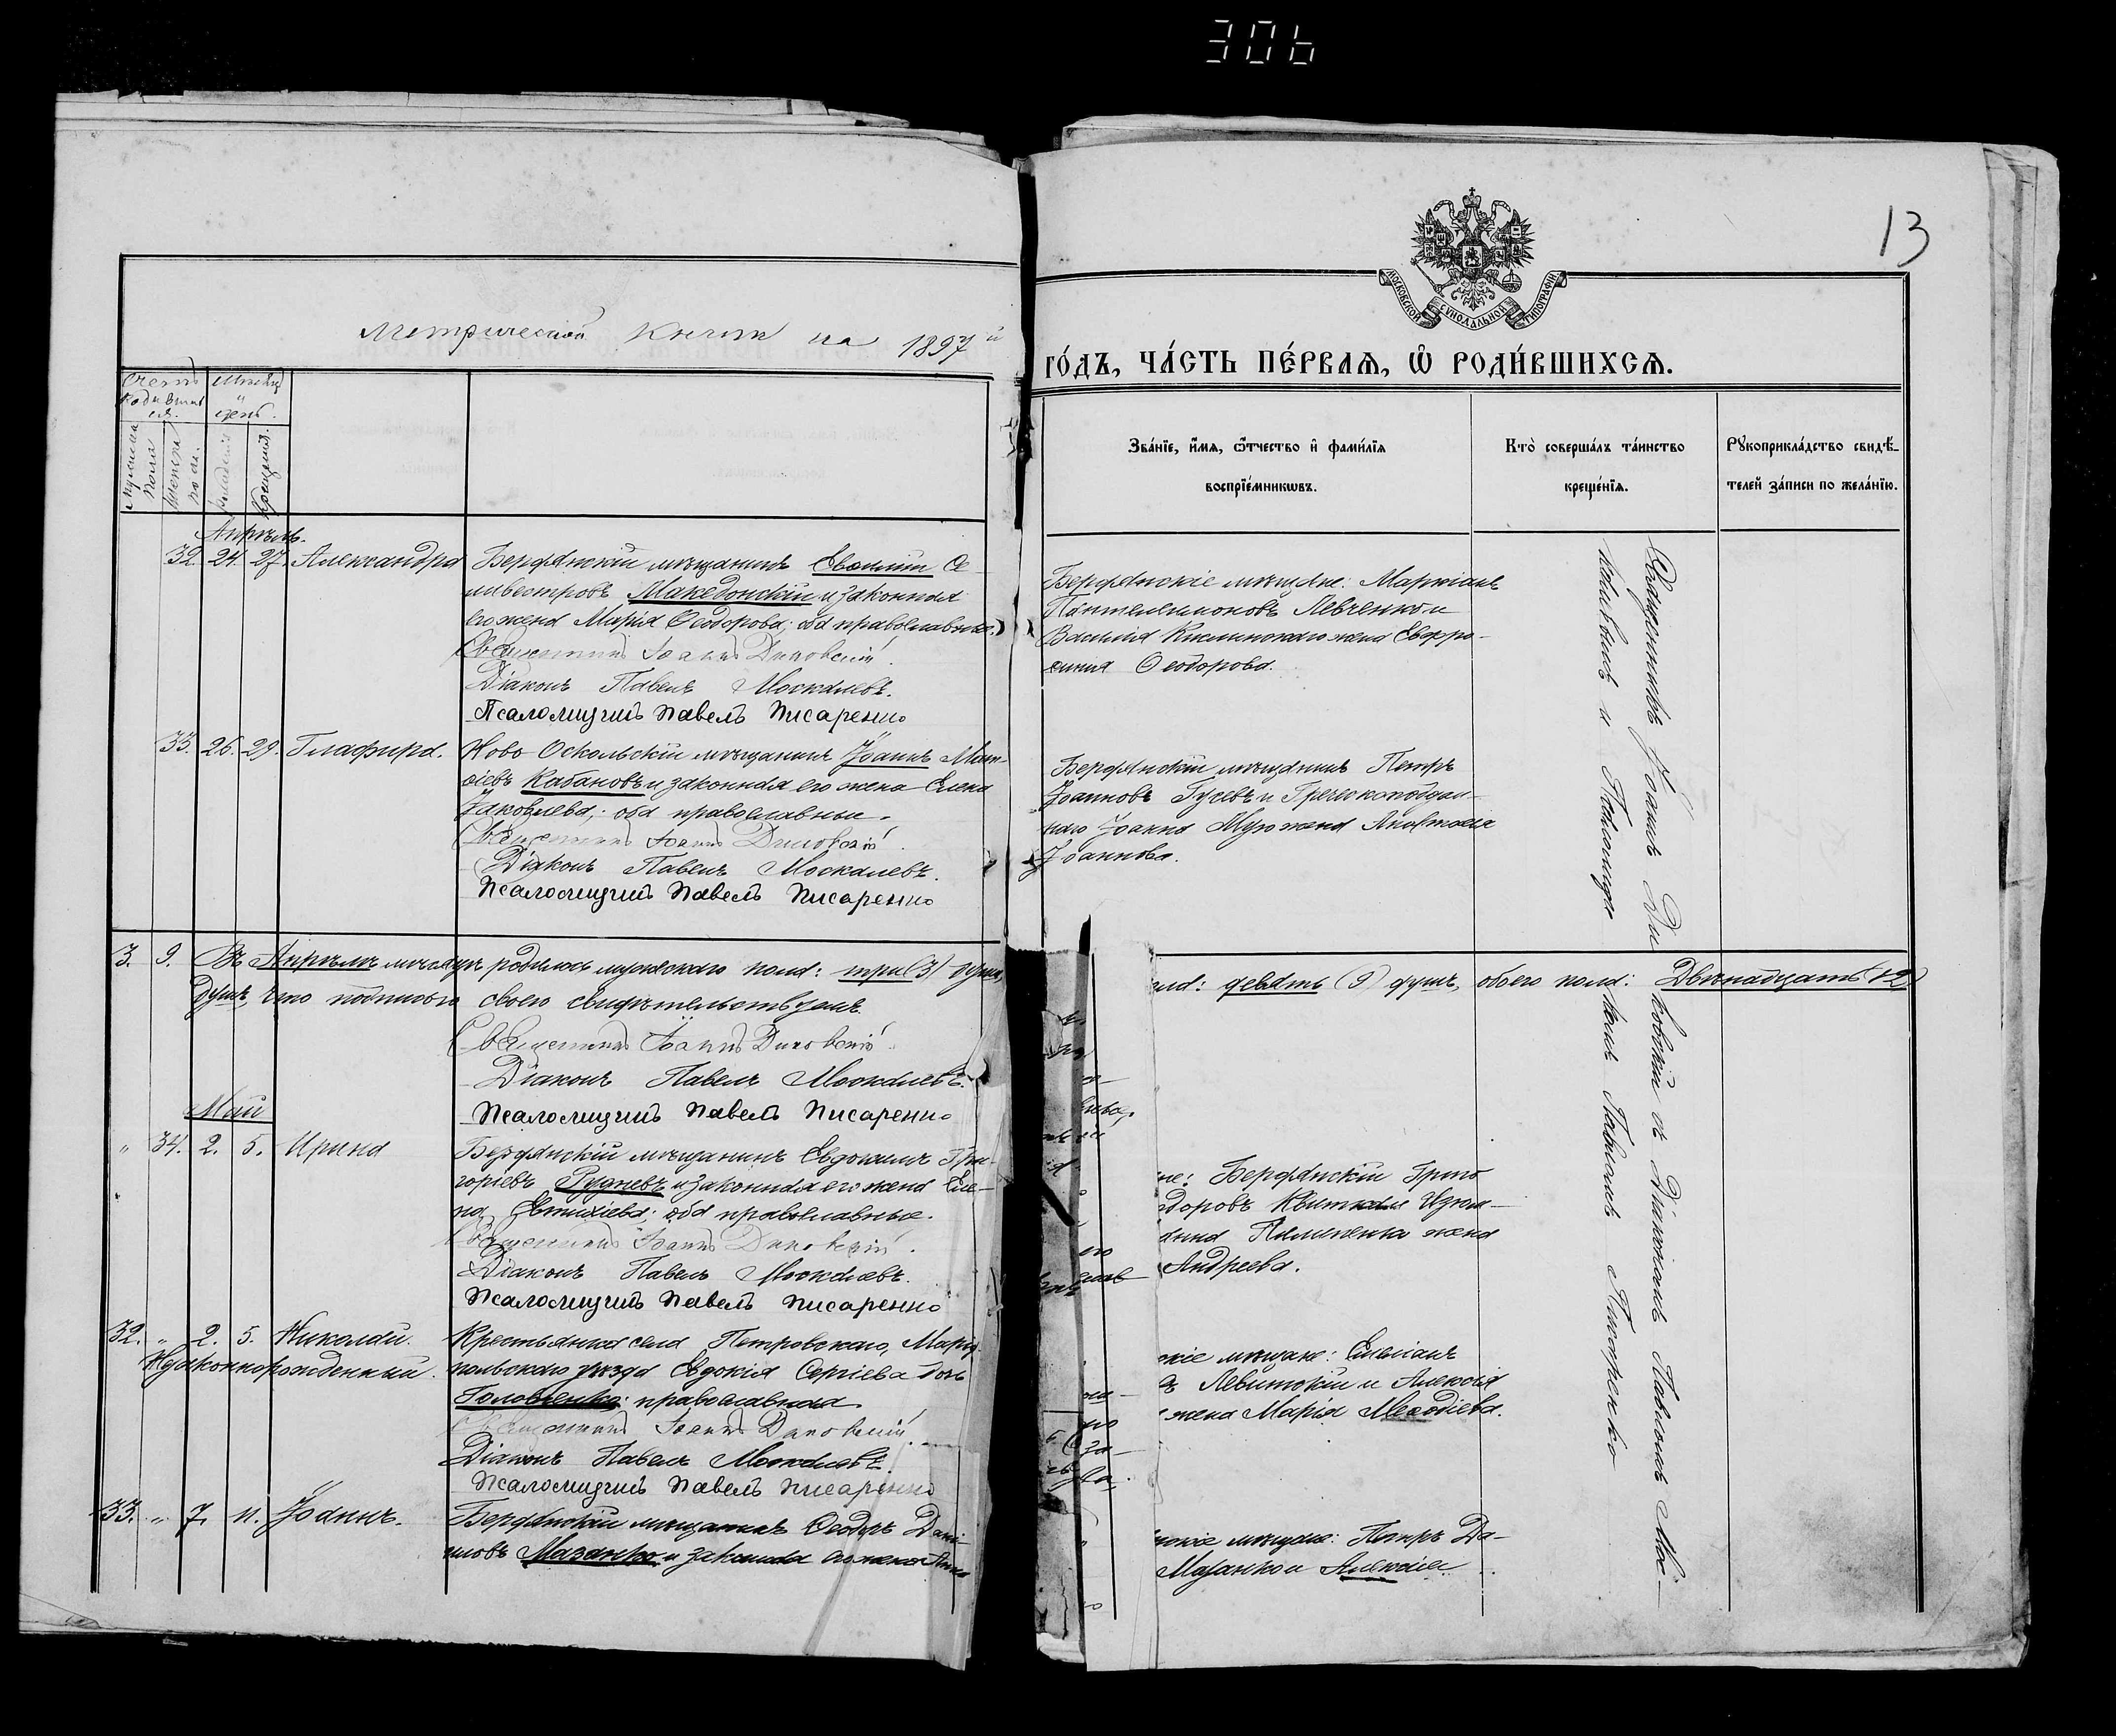 306
13
Метрической книги на 1897 й
го́дъ, ча́сть пе́рваѧ, ѡ҆ роди́вшихсѧ.
МОСКОВСКОЙ СѴНОДАЛЬНОЙ ТИПОГРАФІИ
Счетъ родившихся.
Мѣсяцъ и день.
Мужеска пола
Женска пола.
рожденія
Крещенія.
Зва́нїе, и҆́мѧ, ѻ҆́тчество и҆ фами́лїѧ
воспрїе́мникѡвъ.
Кто̀ соверша́лъ та́инство
креще́нїѧ.
Рꙋкоприкла́дство свидѣ́-
телей за́писи по жела́нїю.
Апрѣль.
32. 24. 27. Александра
Бердянскій мѣщанинъ Евѳимій Се-
ливестровъ Македонскій и законная
его жена Марія Ѳеодорова; оба православные.
Священникъ Іоаннъ Диковскій.
Діаконъ Павелъ Москалевъ.
Псаломщикъ Павелъ Писаренко
Бердянскіе мѣщане: Маркіанъ
Пантелеимоновъ Левченко и
Василія Кислинскаго жена Евфро-
синия Ѳеодорова.
33. 26. 29. Глафира.
Ново Оскольскій мѣщанинъ Іоаннъ Мат-
ѳіевъ Кабановъ и законная его жена Елена
Іаковлева; оба православные.
Священникъ Іоаннъ Диковскій.
Діаконъ Павелъ Москалевъ.
Псаломщикъ Павелъ Писаренко
Бердянскій мѣщанинъ Петръ
Іоанновъ Гусевъ и Греческоподдан-
наго Іоанна жена
Іоаннова.
3. 9. Въ Апрѣлѣ мѣсяцѣ родилось мужскаго пола: три (3) души,
ола: девять (9) душъ, обоего пола: Двѣнадцать (12)
душъ, что подписью своею свидѣтельствуемъ.
Священникъ Іоаннъ Диковскій.
Діаконъ Павелъ Москалевъ.
Псаломщикъ Павелъ Писаренко
Май
" 34. 2. 5. Ирина
Бердянскій мѣщанинъ Евдокимъ Гри-
горіевъ Рудневъ и законная его жена Еле-
на Евтихіева; оба православные.
Священникъ Іоаннъ Диковскій.
Діаконъ Павелъ Москалевъ.
Псаломщикъ Павелъ Писаренко
не: Бердянскій Григо
доровъ
жена
Андреева.
32. " 2. 5. Николай.
Незаконнорожденный.
Крестьянка села Петровскаго, Маріу-
польскаго уѣзда Евдокія Сергіева дочь
Головченко; православная
Священникъ Іоаннъ Диковскій.
Діаконъ Павелъ Москалевъ.
Псаломщикъ Павелъ Писаренко
скіе мѣщане: Емеліанъ
ъ Левитскій и Алексія
жена Марія Меѳодіева.
33. " 7. 11. Іоаннъ.
Бердянскій мѣщанинъ Ѳеодоръ Дані-
иловъ Мазанко и законная его жена Анна
нскіе мѣщане: Петръ Да-
Мазанко и Алексія
Священникъ Іоаннъ Диковскій съ Діакономъ Павломъ Мос-
калевымъ и Псаломщикомъ Павломъ Писаренко